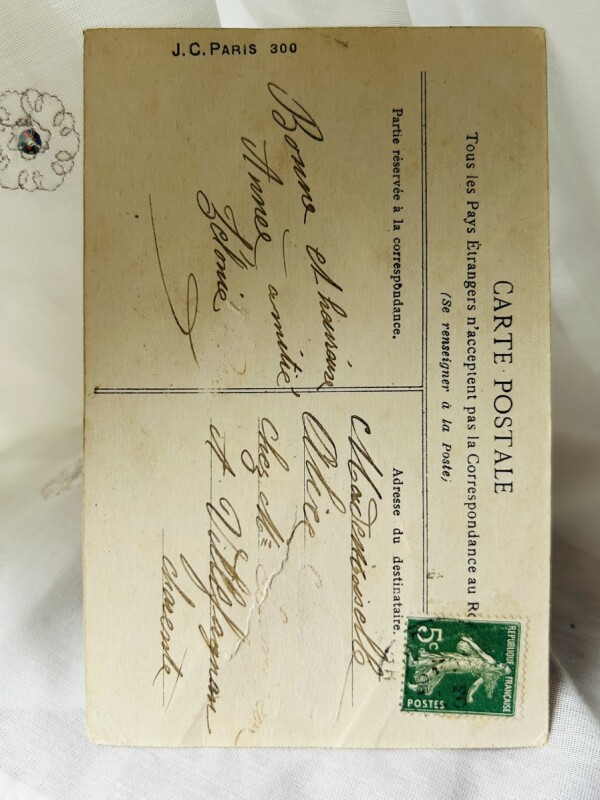 CARTE POSTALE
Tous les Pays Étrangers n'acceptent pas la Correspondance au
(Se renseigner à la Poste)
Partie réservée à la correspondance.
Adresse du destinataire.
Bonne et
Année amitié
Mademoiselle
Chez Me
A Villefagnan
Charente
J.C. PARIS 300
RÉPUBLIQUE FRANÇAISE
5c
POSTES